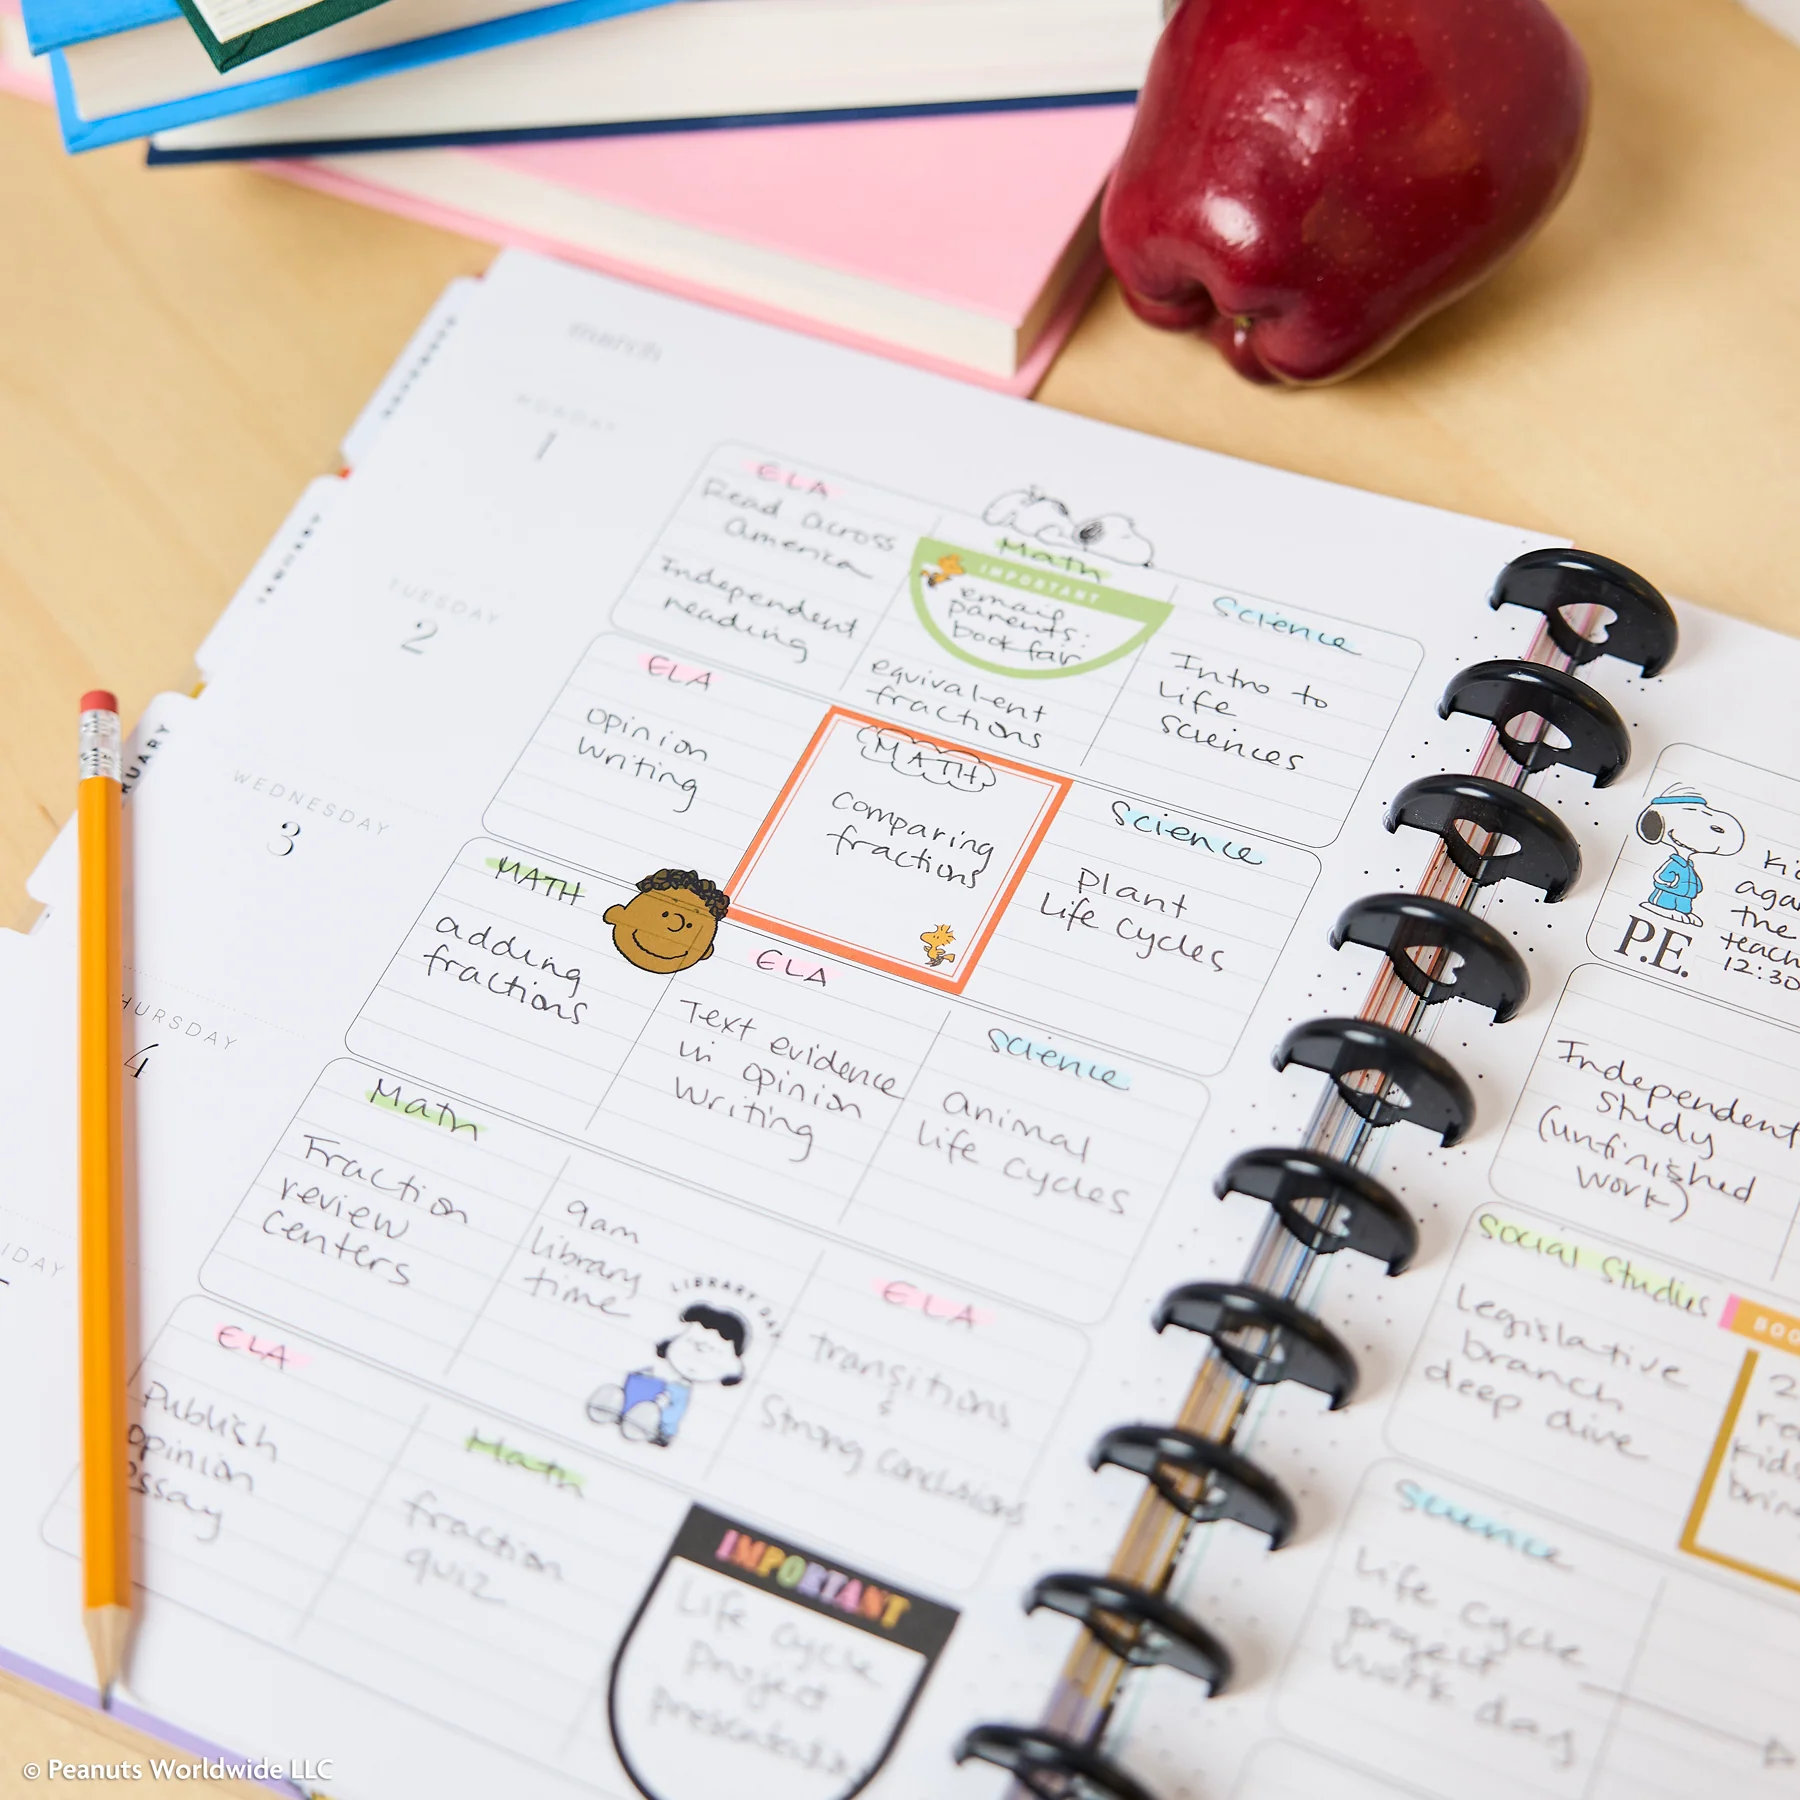 march
MONDAY
1
ELA
Read across
America
Independent
reading
Math
IMPORTANT
email
parents:
book fair
equivalent
fractions
Science
Intro to
Life
Sciences
TUESDAY
2
ELA
opinion
writing
MATH
comparing
fractions
Science
Plant
Life Cycles
WEDNESDAY
3
MATH
adding
fractions
ELA
Text evidence
in opinion
writing
Science
Animal
Life Cycles
HURSDAY
4
Math
Fraction
review
centers
9am
library
time
LIBRARY DAY
ELA
Transitions
&
Strong Conclusions
IDAY
ELA
Publish
opinion
essay
Math
fraction
quiz
IMPORTANT
Life Cycle
project
RUARY
P.E.
the
teach
12:30
Independent
Study
(unfinished
work)
Social Studies
Legislative
branch
deep dive
BOO
2
kids
Science
Life Cycle
project
work day
© Peanuts Worldwide LLC